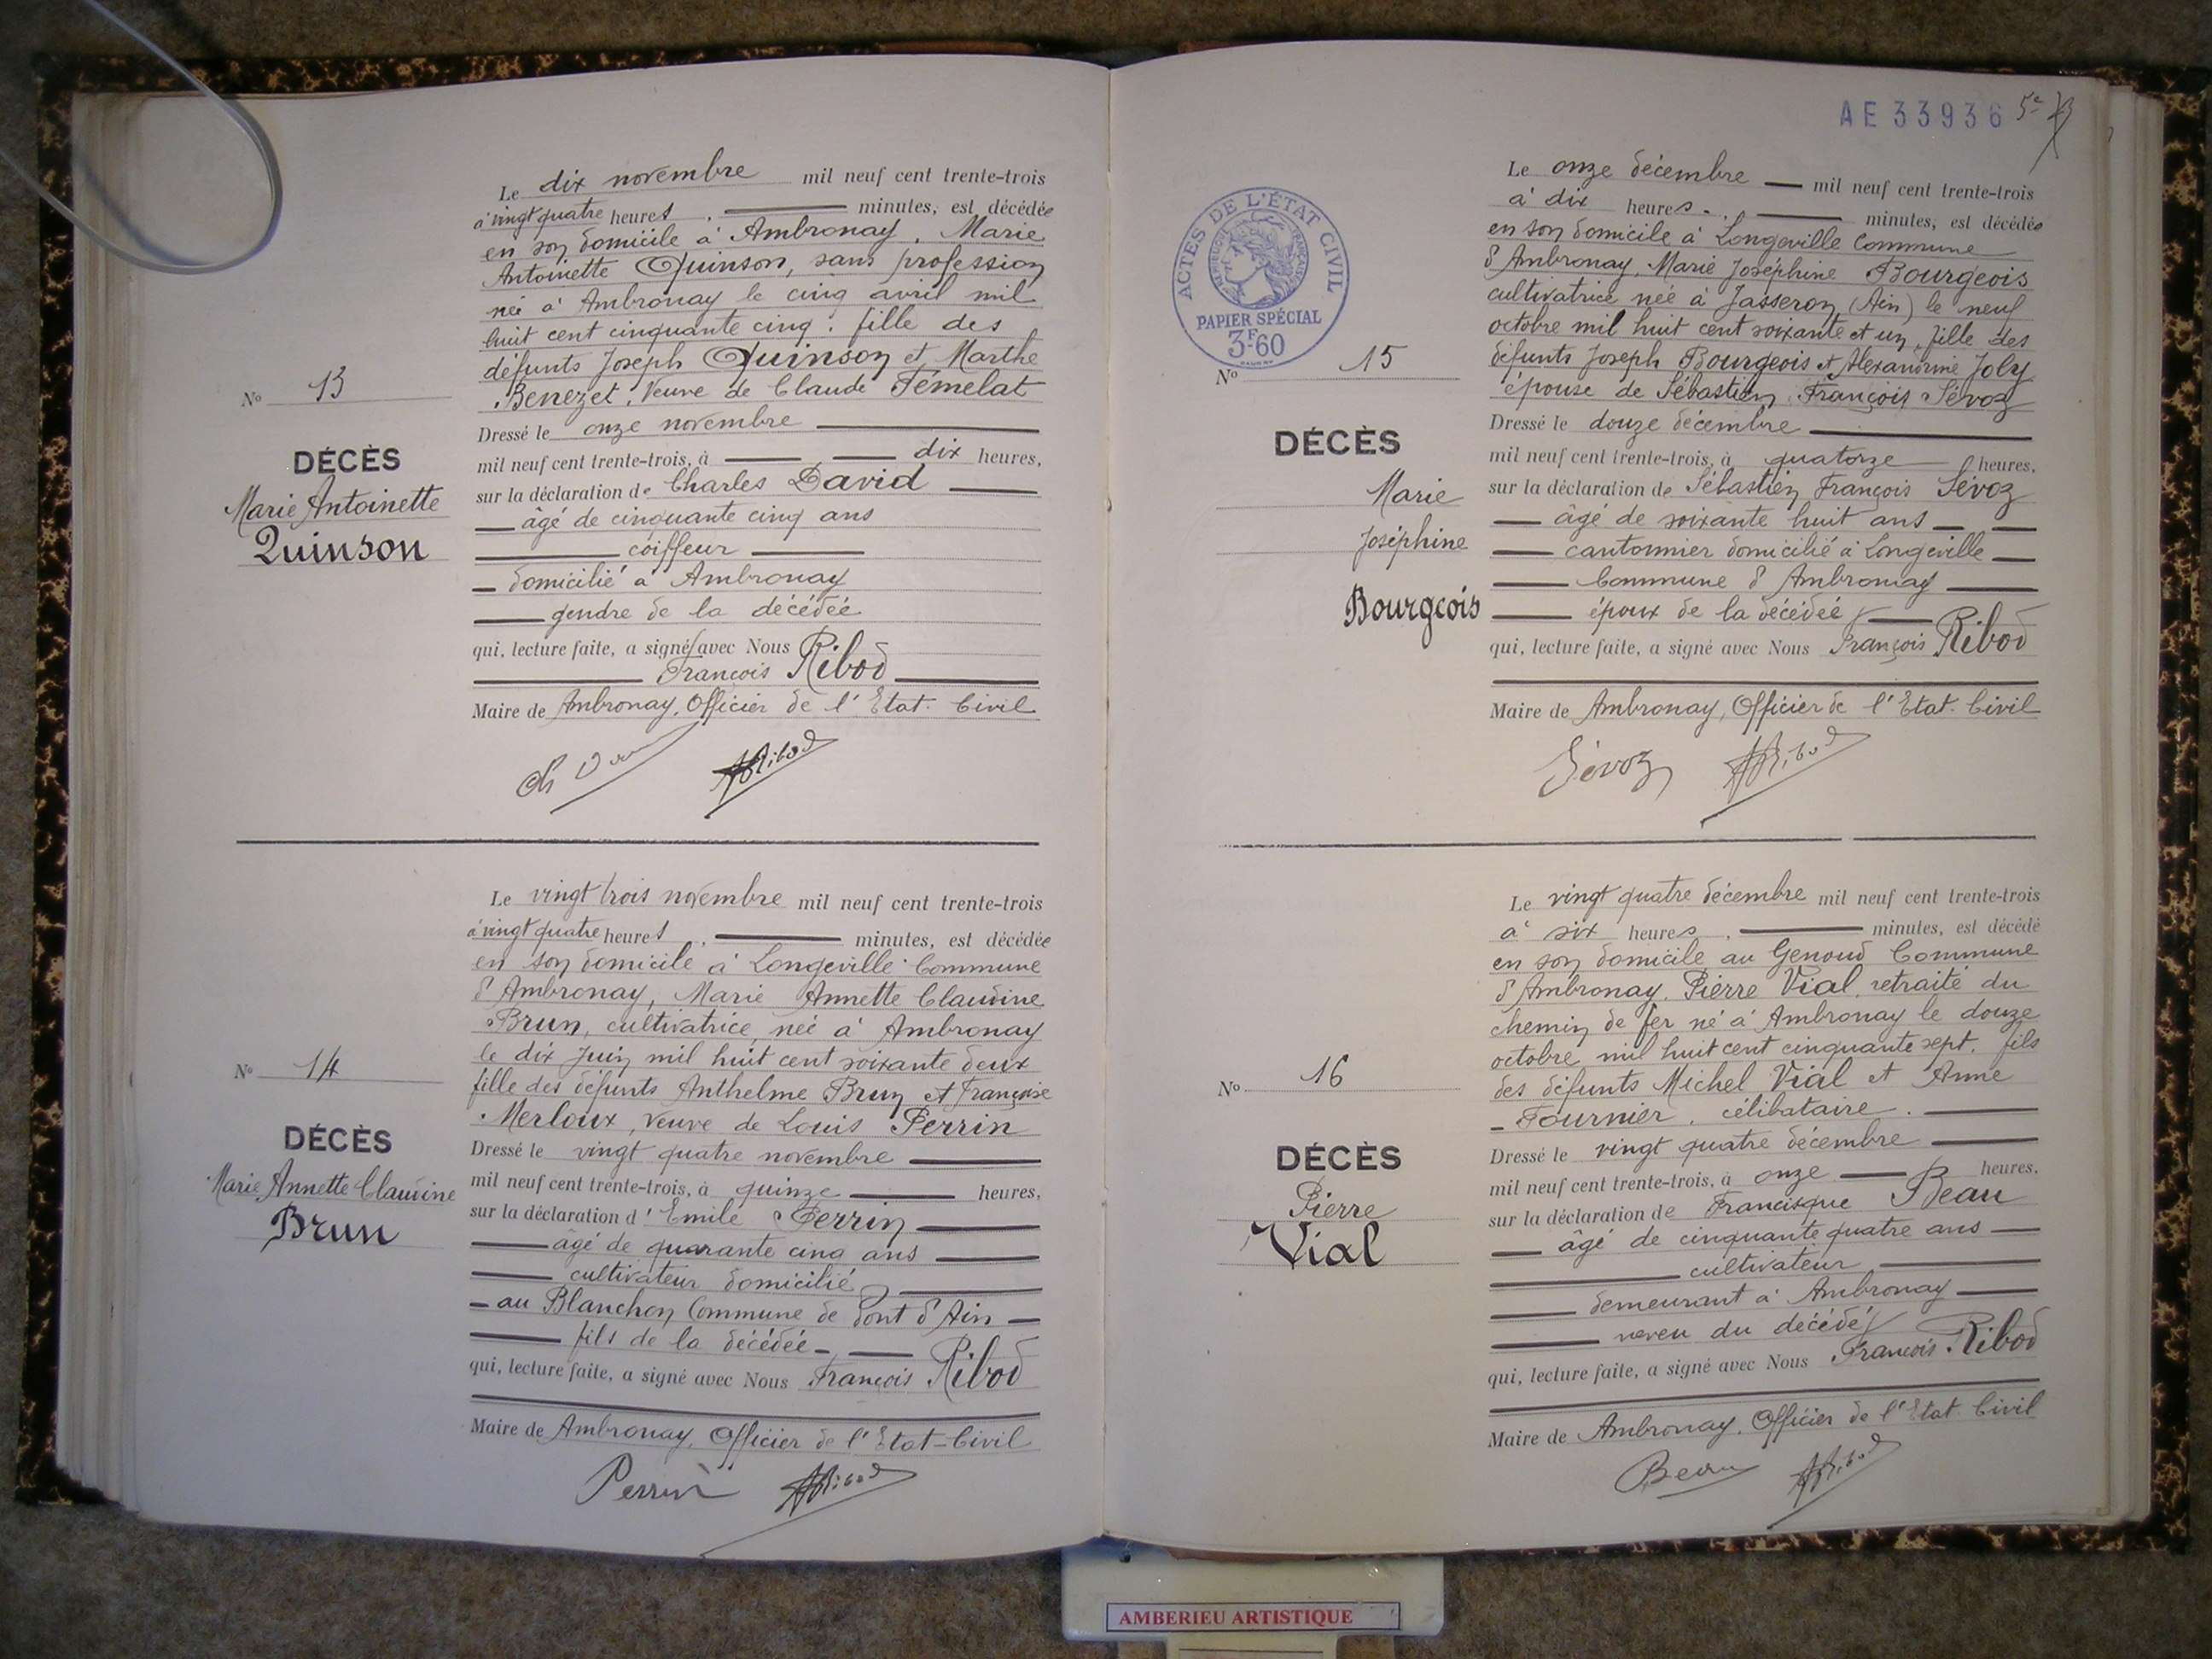 Le dix novembre mil neuf cent trente-trois
à vingt quatre heures, minutes, est décédée
en son domicile à Ambronay, Marie
Antoinette Quinson, sans profession
née à Ambronay le cinq avril mil
huit cent cinquante cinq. fille des
défunts Joseph Quinson et Marthe
Benezet, Veuve de Claude Témelat
Dressé le onze novembre
mil neuf cent trente-trois, à dix heures,
sur la déclaration de Charles David
âgé de cinquante cinq ans
coiffeur
domicilié à Ambronay
gendre de la décédée
qui, lecture faite, a signé avec Nous
François Ribod
Maire de Ambronay, Officier de l'Etat-Civil
Ribod
No 13
DÉCÈS
Marie Antoinette
Quinson
Le vingt trois novembre mil neuf cent trente-trois
à vingt quatre heures, minutes, est décédée
en son domicile à Longeville Commune
d'Ambronay, Marie Annette Claudine
Brun, cultivatrice, née à Ambronay
le dix Juin mil huit cent soixante deux
fille des défunts Anthelme Brun et Françoise
Merloux, veuve de Louis Perrin
Dressé le vingt quatre novembre
mil neuf cent trente-trois, à quinze heures,
sur la déclaration d'Emile Perrin
agé de quarante cinq ans
cultivateur domicilié
au Blanchon Commune de Pont d'Ain
fils de la décédée
qui, lecture faite, a signé avec Nous François Ribod
Maire de Ambronay, Officier de l'Etat-Civil
Perrin Ribod
No 14
DÉCÈS
Marie Annette Claudine
Brun
AE 33936
ACTES DE L'ÉTAT CIVIL
PAPIER SPÉCIAL
3F60
Le onze décembre mil neuf cent trente-trois
à dix heures, minutes, est décédée
en son domicile à Longeville Commune
d'Ambronay, Marie Joséphine Bourgeois
cultivatrice née à Jasseron (Ain) le neuf
octobre mil huit cent soixante et un, fille des
défunts Joseph Bourgeois et Alexandrine Joly
épouse de Sébastien François Sévoz
Dressé le douze décembre
mil neuf cent trente-trois, à quatorze heures,
sur la déclaration de Sébastien François Sévoz
âgé de soixante huit ans
cantonnier domicilié à Longeville
Commune d'Ambronay
époux de la décédée
qui, lecture faite, a signé avec Nous François Ribod
Maire de Ambronay, Officier de l'Etat-Civil
Sévoz Ribod
No 15
DÉCÈS
Marie
Joséphine
Bourgeois
Le vingt quatre décembre mil neuf cent trente-trois
à six heures, minutes, est décédé
en son domicile au Genoud Commune
d'Ambronay, Pierre Vial, retraité du
chemin de fer né à Ambronay le douze
octobre mil huit cent cinquante sept. fils
des défunts Michel Vial et Anne
Fournier, célibataire.
Dressé le vingt quatre décembre
mil neuf cent trente-trois, à onze heures,
sur la déclaration de Francisque Beau
âgé de cinquante quatre ans
cultivateur
demeurant à Ambronay
neveu du décédé
qui, lecture faite, a signé avec Nous François Ribod
Maire de Ambronay, Officier de l'Etat-Civil
Beau Ribod
No 16
DÉCÈS
Pierre
Vial
AMBERIEU ARTISTIQUE